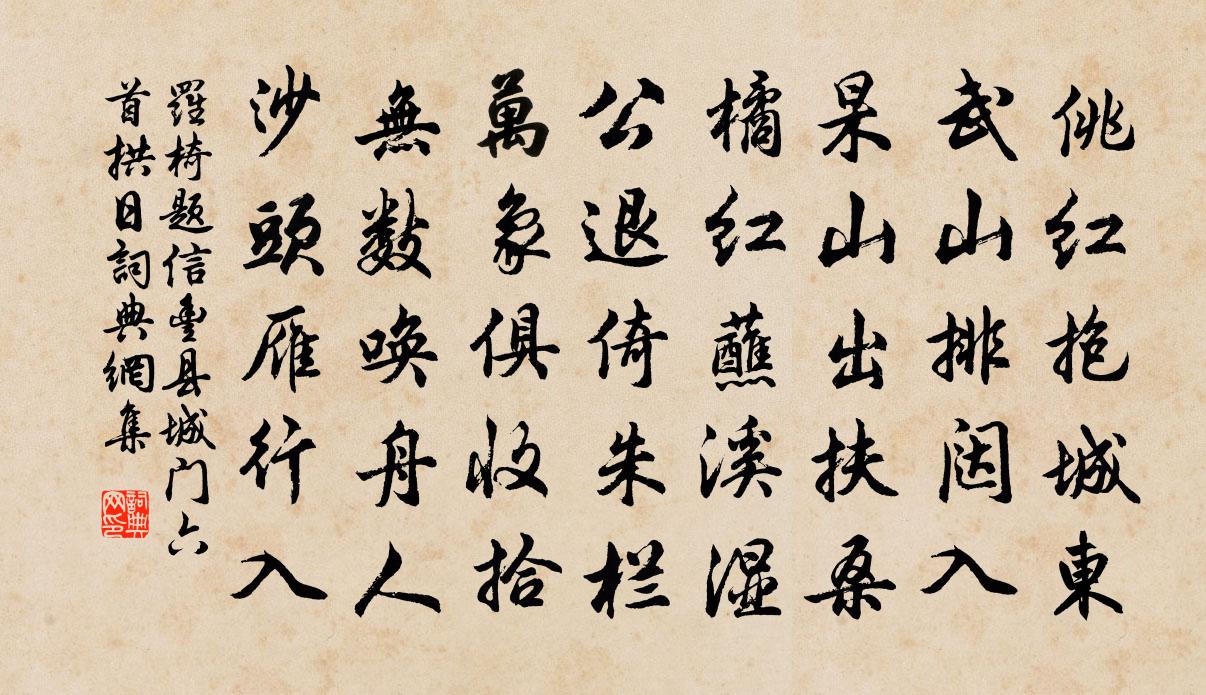 佻红抱城東
武山排闼入
杲山出扶桑
橘红蘸溪湿
公退倚朱栏
萬象俱收拾
無数唤舟人
沙頭雁行入
羅椅题信豐县城门六
首拱日詞典網集
詞典网印